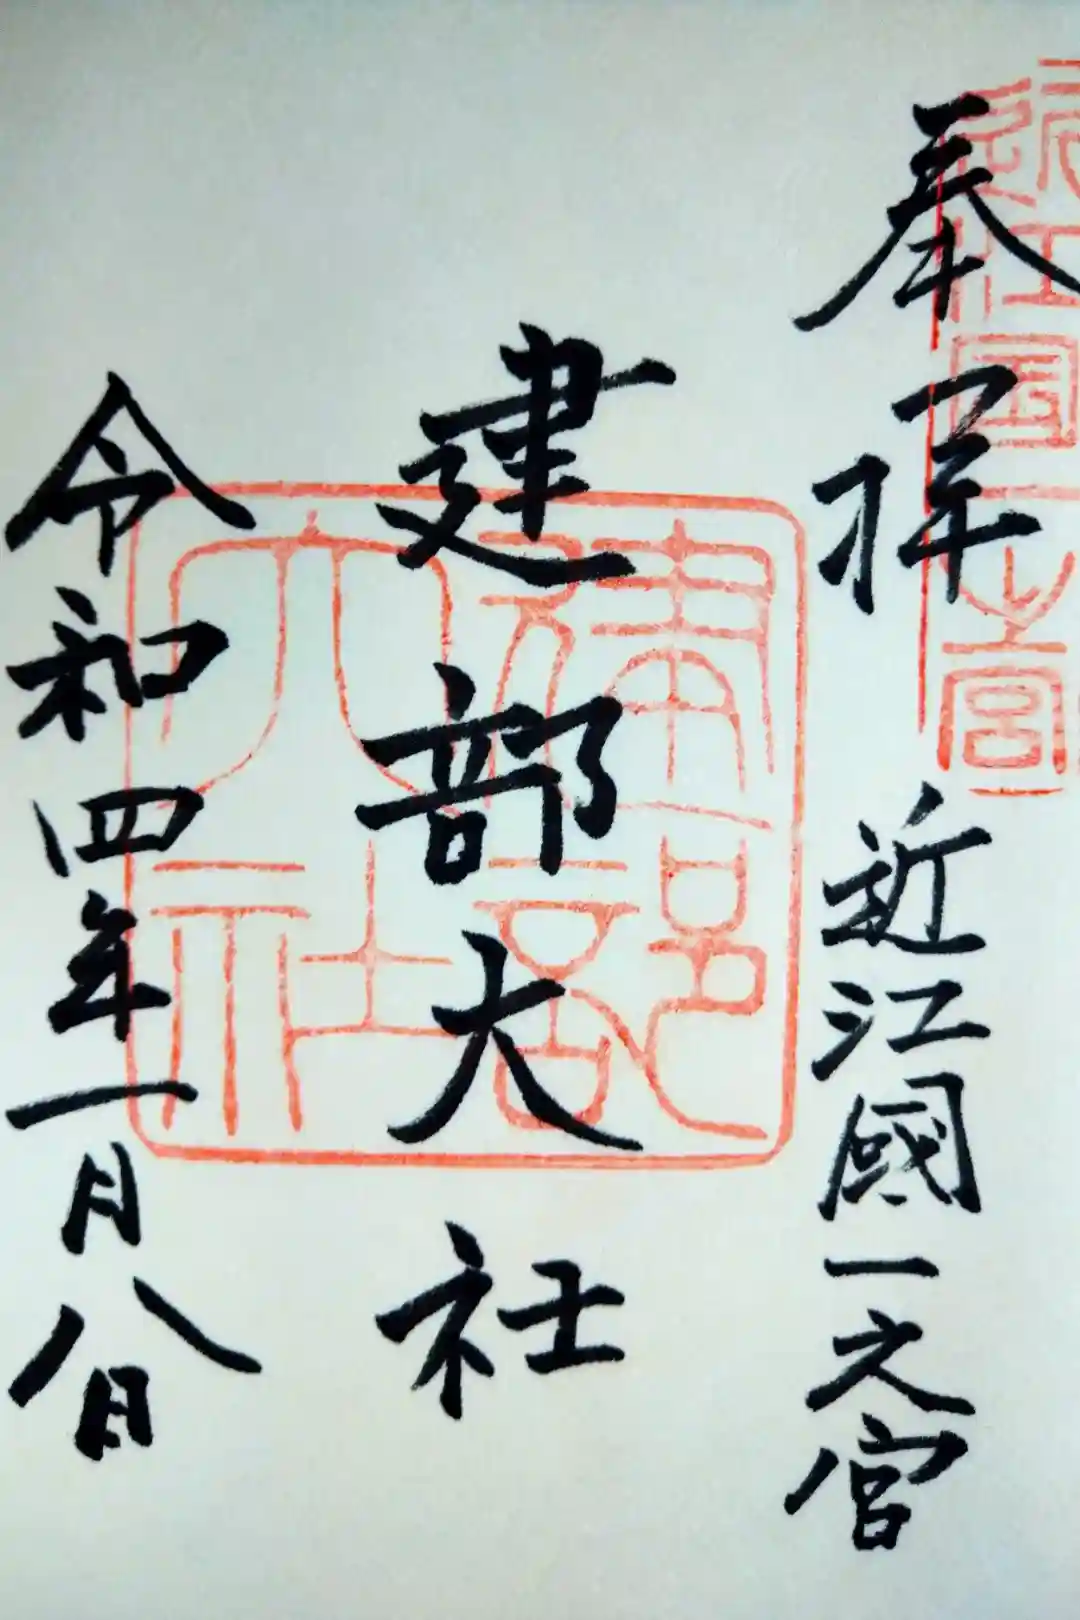 奉拝 近江國一之宮
建部大社
令和四年一月八日
近江国一之宮
建部大社